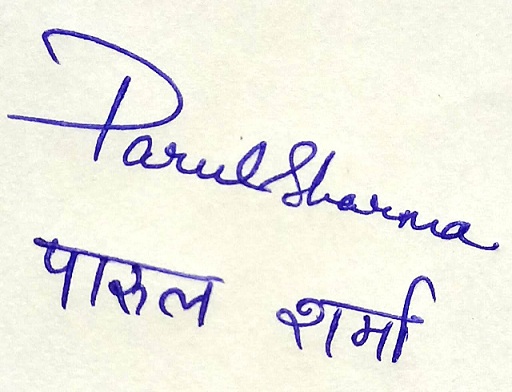 Parul Sharma
पारुल शर्मा